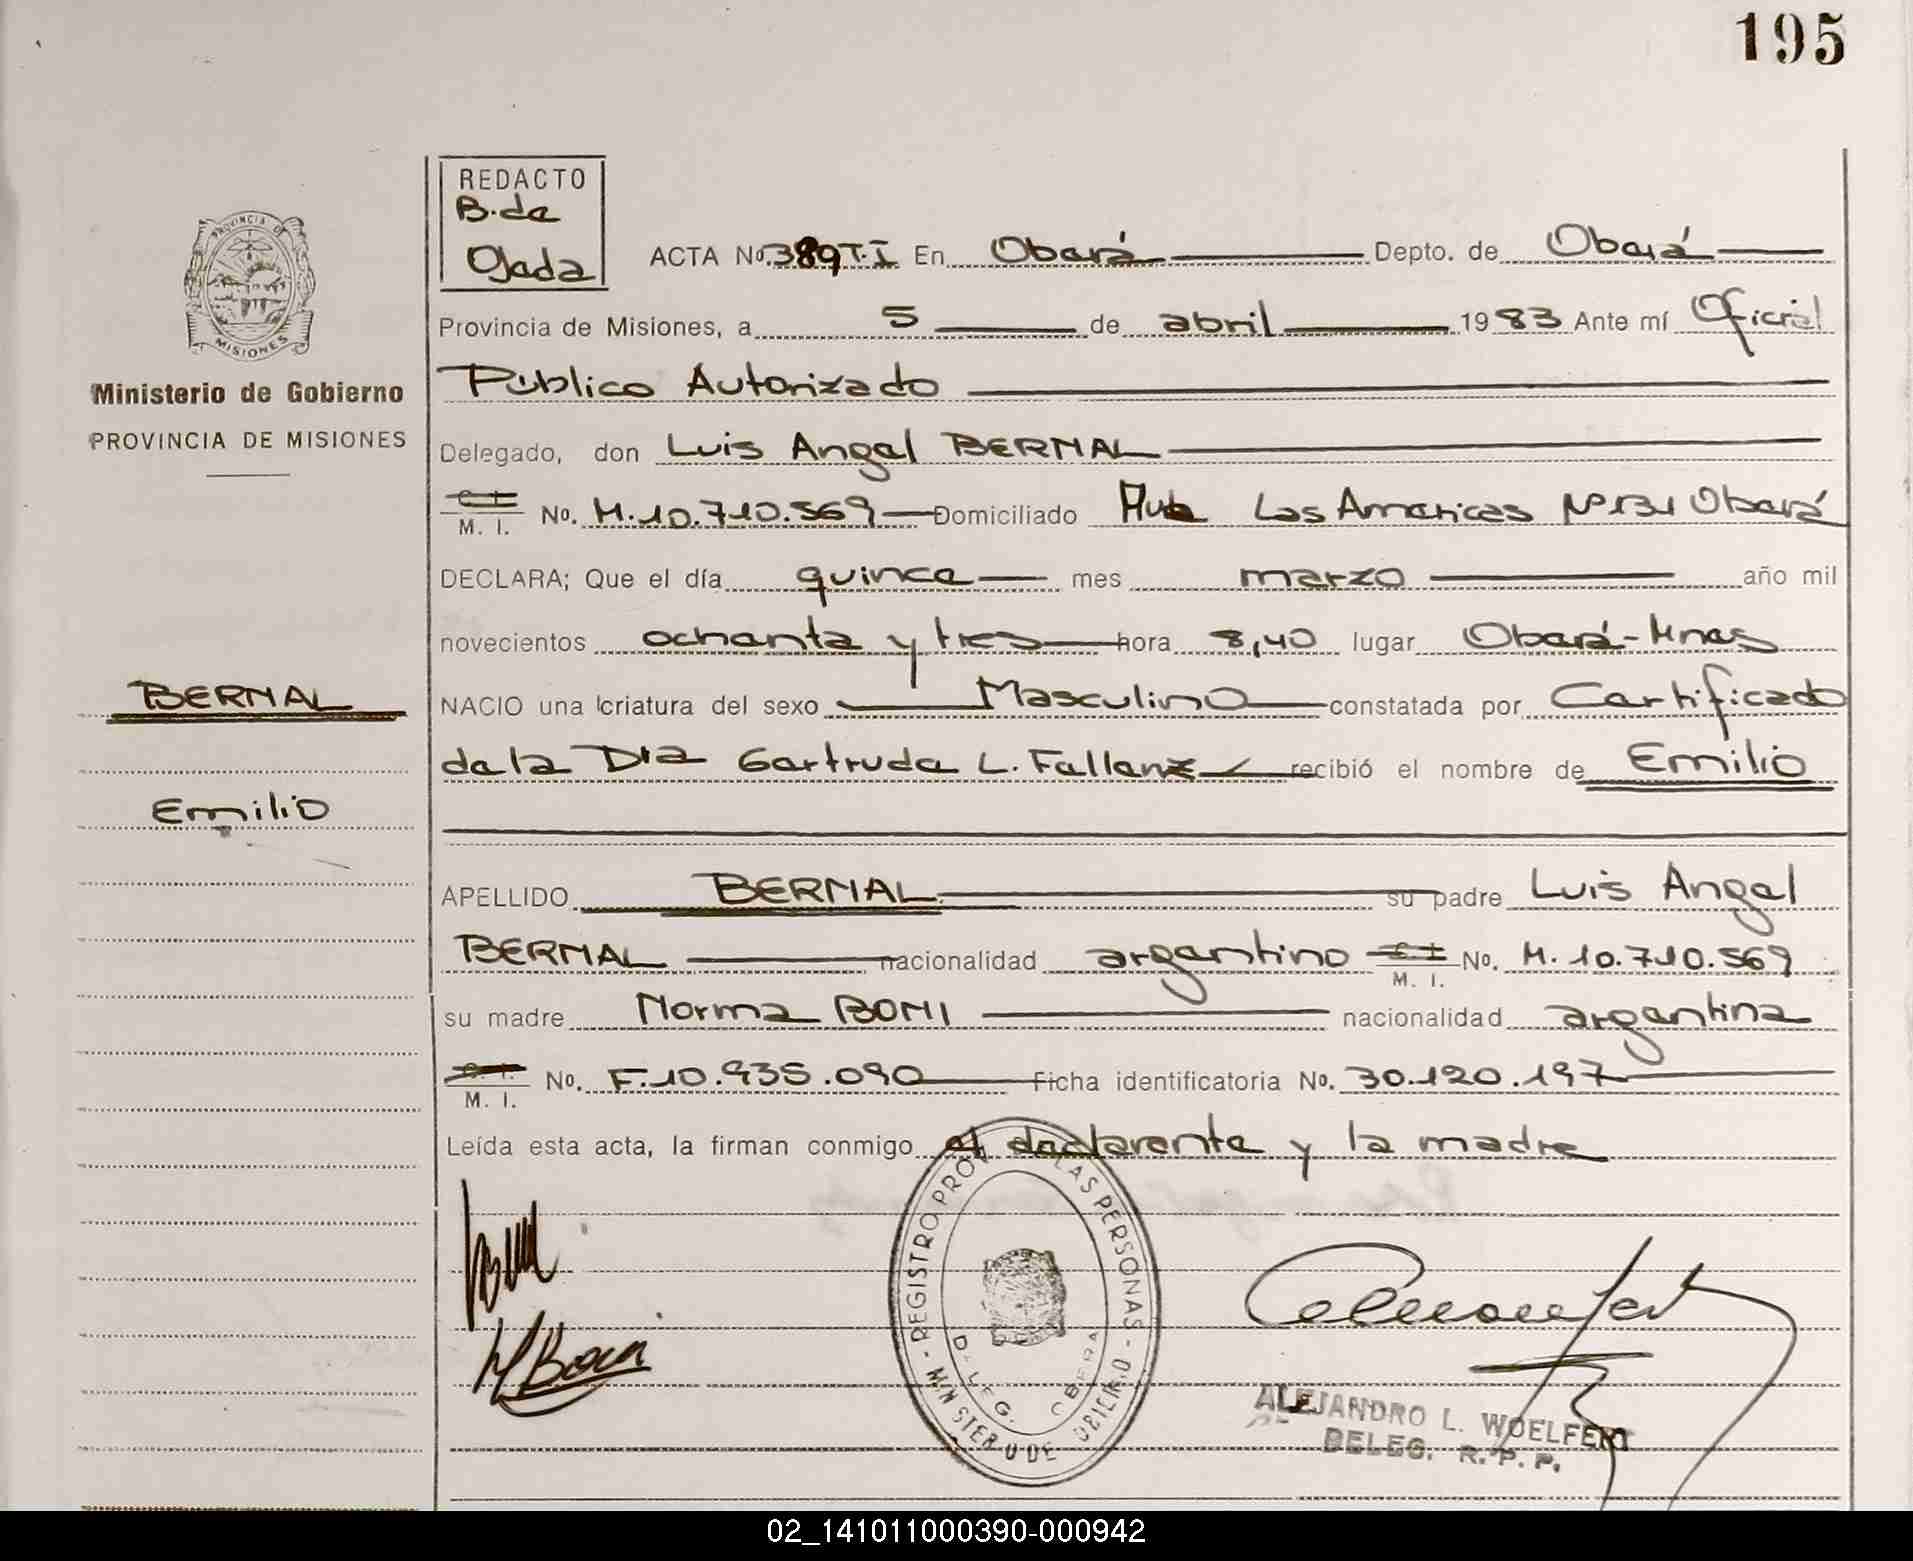 195
REDACTO
B. de
Ojeda
ACTA No. 389 T.I En Oberá Depto. de Oberá
Provincia de Misiones, a 5 de abril 1983 Ante mí Oficial
Público Autorizado
Delegado, don Luis Angel BERNAL
C. I.
M. I. No. M.10.710.569 Domiciliado Avda Las Americas Nº 131 Oberá
DECLARA; Que el día quince mes marzo año mil
novecientos ochenta y tres hora 8,40 lugar Oberá-Mnes
NACIO una criatura del sexo Masculino constatada por Certificado
de la Dra Gertruda L. Fallenz recibió el nombre de Emilio
APELLIDO BERNAL su padre Luis Angel
BERNAL nacionalidad argentino C. I. M. I. No. M. 10.710.569
su madre Norma BONI nacionalidad argentina
C. I.
M. I. No. F.10.935.090 Ficha identificatoria No. 30.120.197
Leída esta acta, la firman conmigo el declarente y la madre
PROVINCIA DE
MISIONES
Ministerio de Gobierno
PROVINCIA DE MISIONES
BERNAL
Emilio
REGISTRO PROV. LAS PERSONAS - MINISTERIO DE GOBIERNO
DELEG. OBERA
N Boni
ALEJANDRO L. WOELFERT
DELEG. R. P. P.
02_141011000390-000942